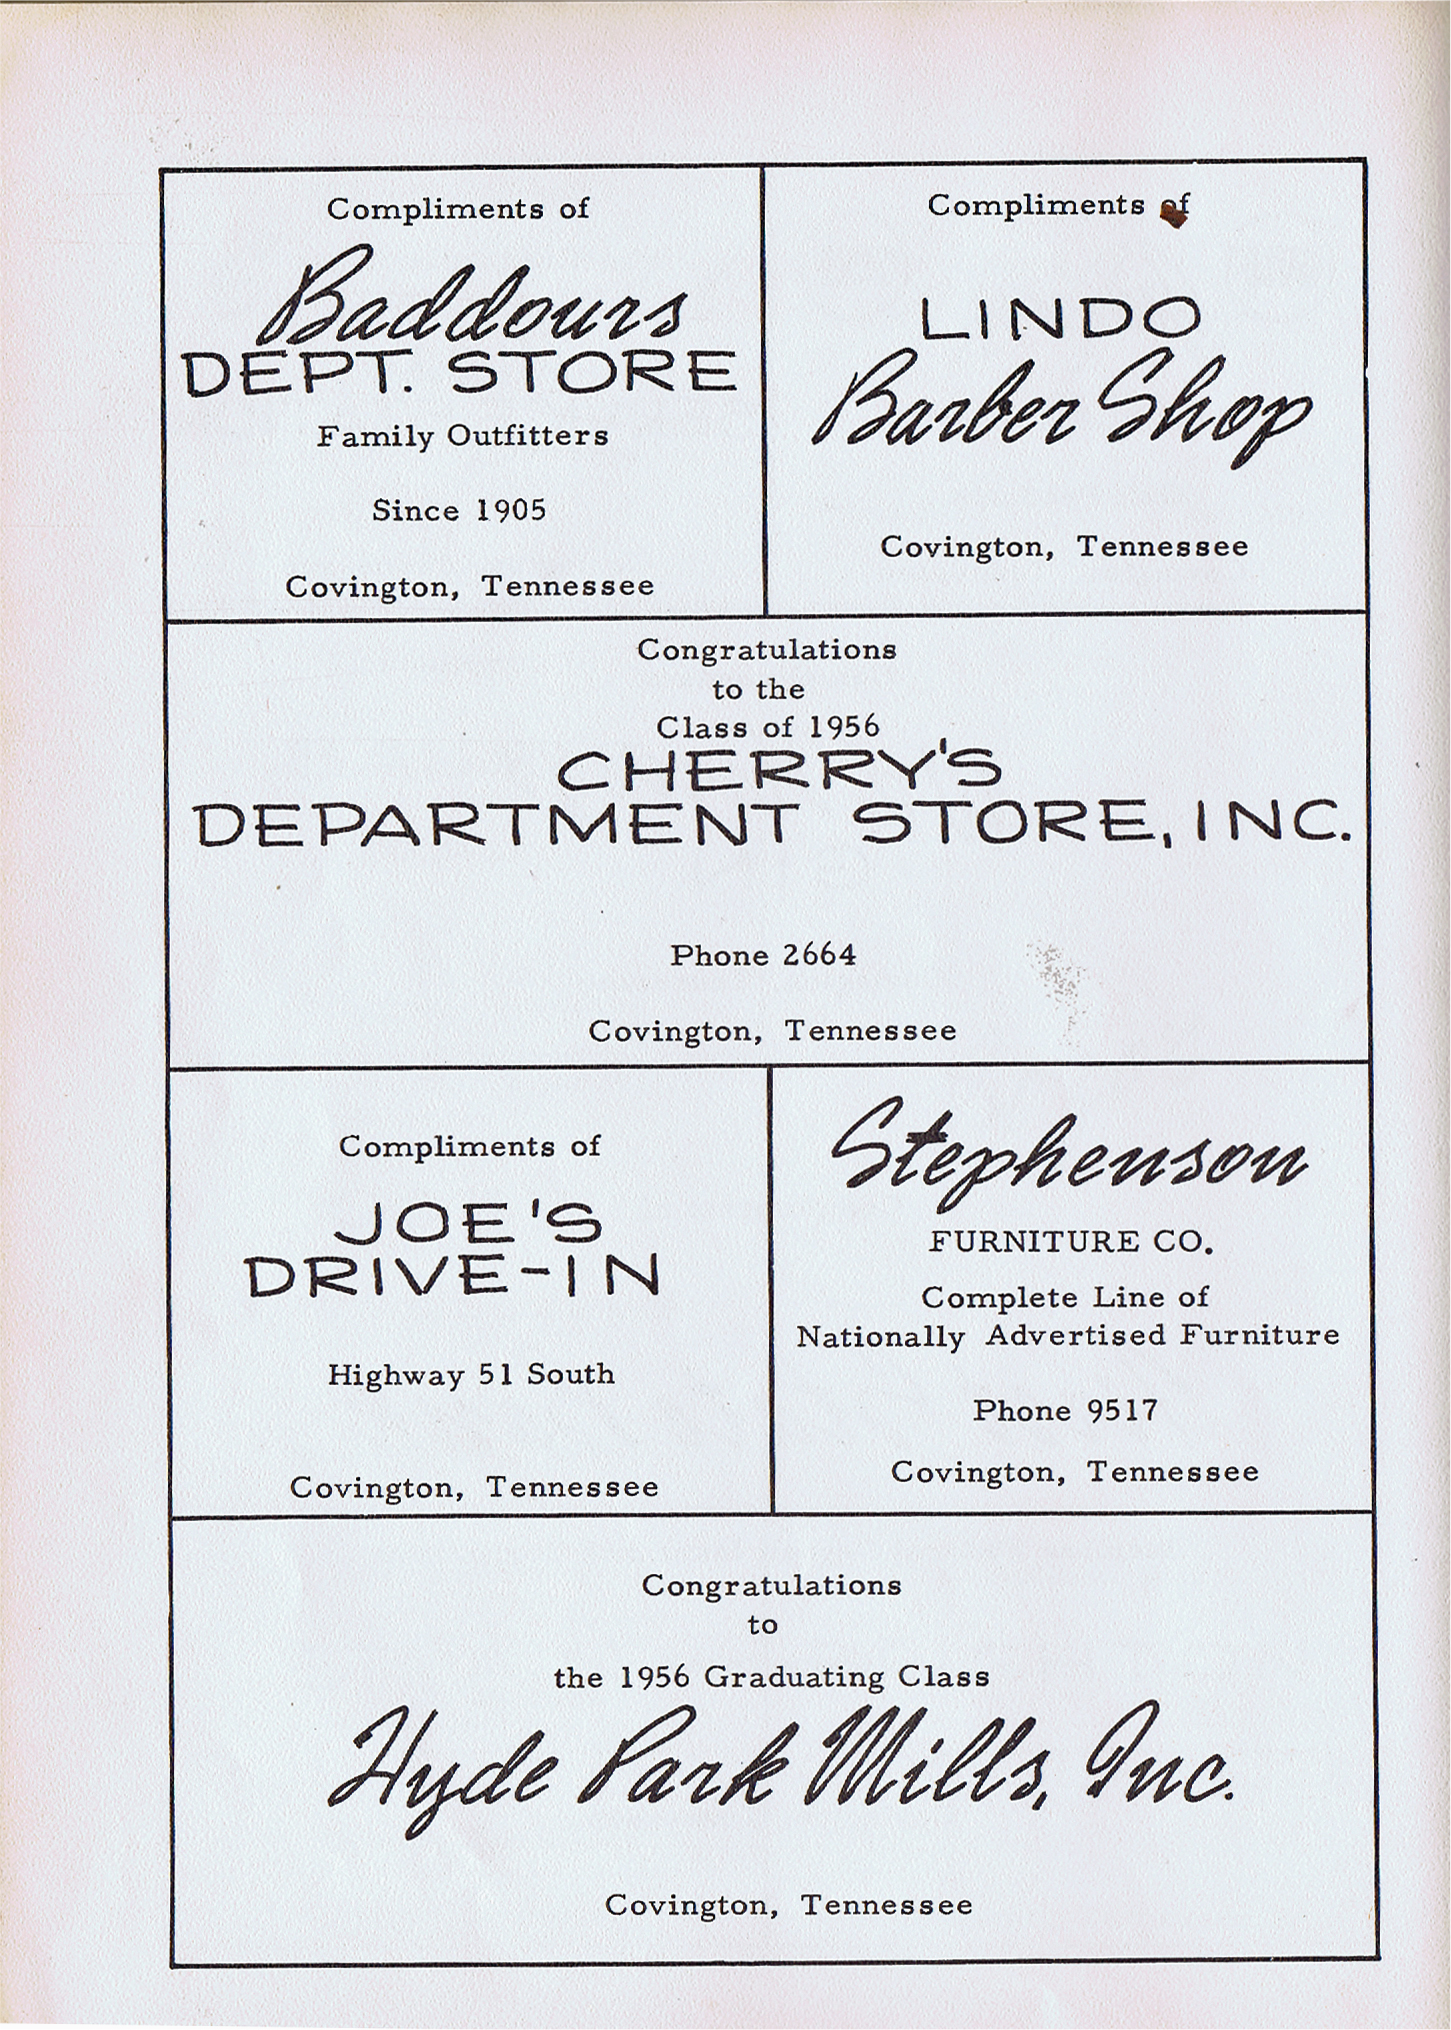 Compliments of
Baddours
DEPT. STORE
Family Outfitters
Since 1905
Covington, Tennessee
Compliments of
LINDO
Barber Shop
Covington, Tennessee
Congratulations
to the
Class of 1956
CHERRY'S
DEPARTMENT STORE, INC.
Phone 2664
Covington, Tennessee
Compliments of
JOE'S
DRIVE-IN
Highway 51 South
Covington, Tennessee
Stephenson
FURNITURE CO.
Complete Line of
Nationally Advertised Furniture
Phone 9517
Covington, Tennessee
Congratulations
to
the 1956 Graduating Class
Hyde Park Mills, Inc.
Covington, Tennessee